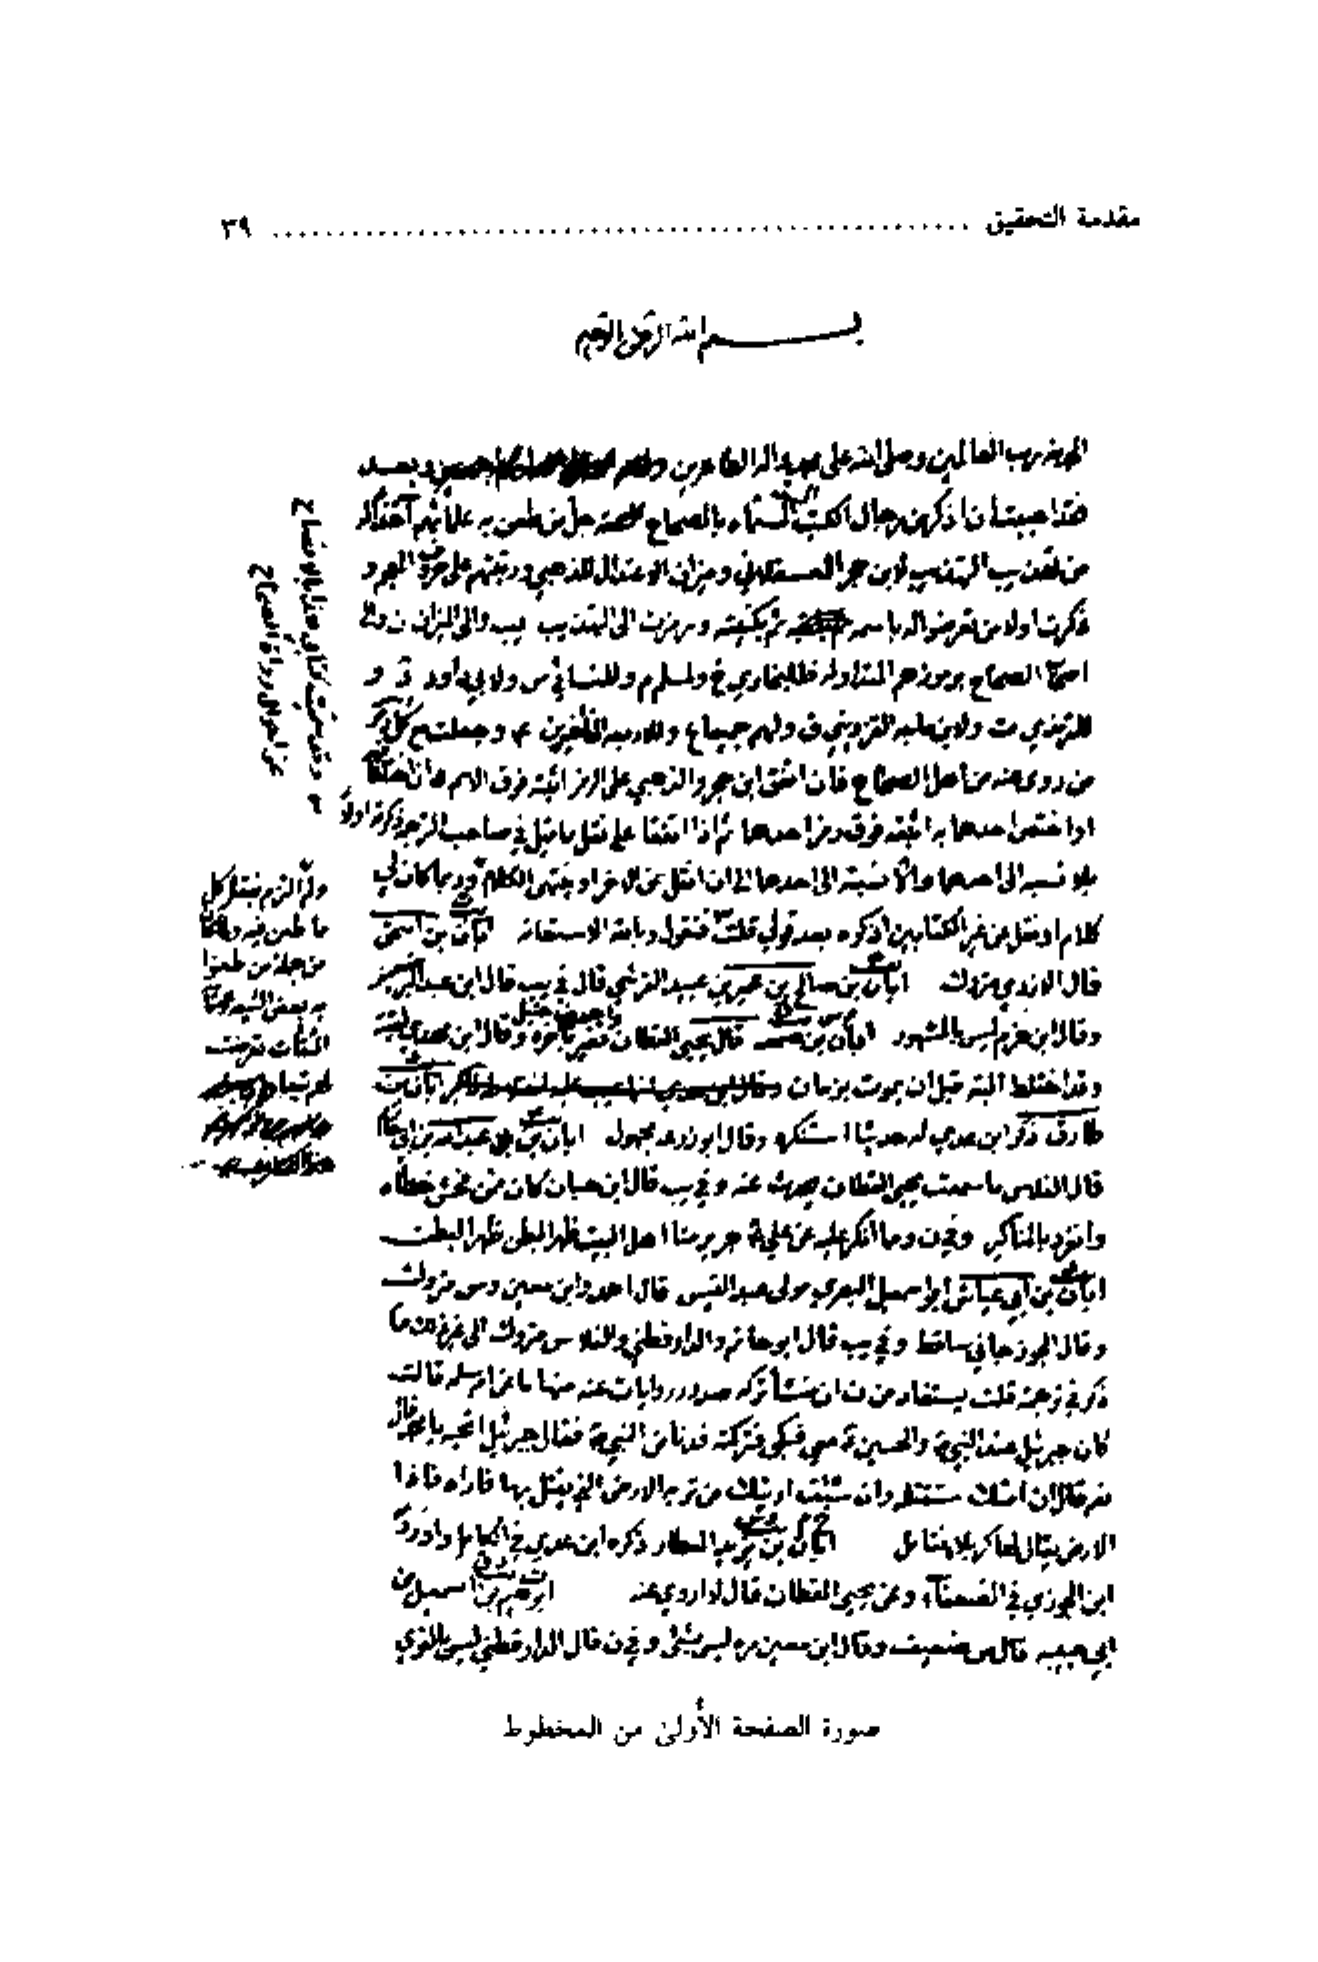 مقدمة التحقيق ........................................ ٣٩
بسم الله الرحمن الرحيم
الحمد لله رب العالمين وصلى الله على محمد واله الطاهرين وبعد
فقد احببت ان اذكر من رجال الكتب الستة المسماة بالصحاح عندهم جل من طعن به علمائهم آخذا له
من تهذيب التهذيب لابن حجر العسقلاني وميزان الاعتدال للذهبي ورتبتهم على حروف المعجم
فذكرت اولا من تعرضوا له باسمه ثم بكنيته ورمزت الى التهذيب بيب والى الميزان ن والى
اصحاب الصحاح برموزهم المتداولة فللبخاري خ ولمسلم م وللنسائي س ولابي داود د و
للترمذي ت ولابن ماجه القزويني ق ولهم جميعا ع وللاربعة الاخيرين ٤ وجعلت مع كل رمز
من روى عنه من اهل الصحاح فان اتفق ابن حجر والذهبي على الرمز اثبته فوق الاسم وان اختلفا
او اختص احدهما به اثبته فوق رمز احدهما ثم اذا اتفقا على نقل ما قيل في صاحب الترجمة ذكرته اولا
بلا نسبة الى احدهما والا نسبته الى احدهما الى ان انقل عن الاخر او ينتهي الكلام وربما كان لي
كلام او نقل عن غير الكتابين اذكره بعد قولي قلت فنقول وبالله الاستعانة ابان بن اسحق
قال الازدي متروك ابان بن صالح بن عمير بن عبيد القرشي قال في يب قال ابن عبد البر ضعيف
وقال ابن حزم ليس بالمشهور ابان بن صمعة قال يحيى القطان تغير باخره وقال ابن مهدي لقيته
وقد اختلط البتة قبل ان يموت بزمان ابان بن
طارق ذكر ابن عدي له حديثا استنكره وقال ابو زرعة مجهول ابان بن عبد الله بن ابي حازم
قال الفلاس ما سمعت يحيى القطان يحدث عنه وفي يب قال ابن حبان كان ممن فحش خطأه
وانفرد بالمناكير وفي ن ومما انكر عليه عن علي جرير منا اهل البيت ظهرا لبطن ظهرا لبطن
ابان بن ابي عياش ابو اسمعيل البصري مولى عبد القيس قال احمد وابن معين وس متروك
وقال الجوزجاني ساقط وفي يب قال ابو حاتم والدارقطني والفلاس متروك الى غير ذلك مما
ذكر في ترجمته قلت يستفاد من ن ان منشأ تركه صدور روايات عنه منها ما عن ام سلمة قالت
كان جبرئيل عند النبي والحسين معي فبكى فتركته فدنا من النبي فقال جبرئيل اتحبه يا محمد قال
نعم قال ان امتك ستقتله وان شئت اريتك من تربة الارض التي يقتل بها فاراه فاذا
الارض يقال لها كربلا فتامل ابان بن يزيد العطار ذكره ابن عدي في الكامل واورده
ابن الجوزي في الضعفاء وعن يحيى القطان قال لا اروي عنه ابرهيم بن اسمعيل بن
ابي حبيبة قال س ضعيف وقال ابن معين مرة ليس بشئ وفي ن قال الدارقطني ليس بالقوي
وقد سميت كتابي هذا بالافصاح
عن احوال رواة الصحاح
ولم التزم بنقل كل
ما طعن فيه
من جملة من طعنوا
به بعض الشيعة
الثقات
صورة الصفحة الأولى من المخطوط